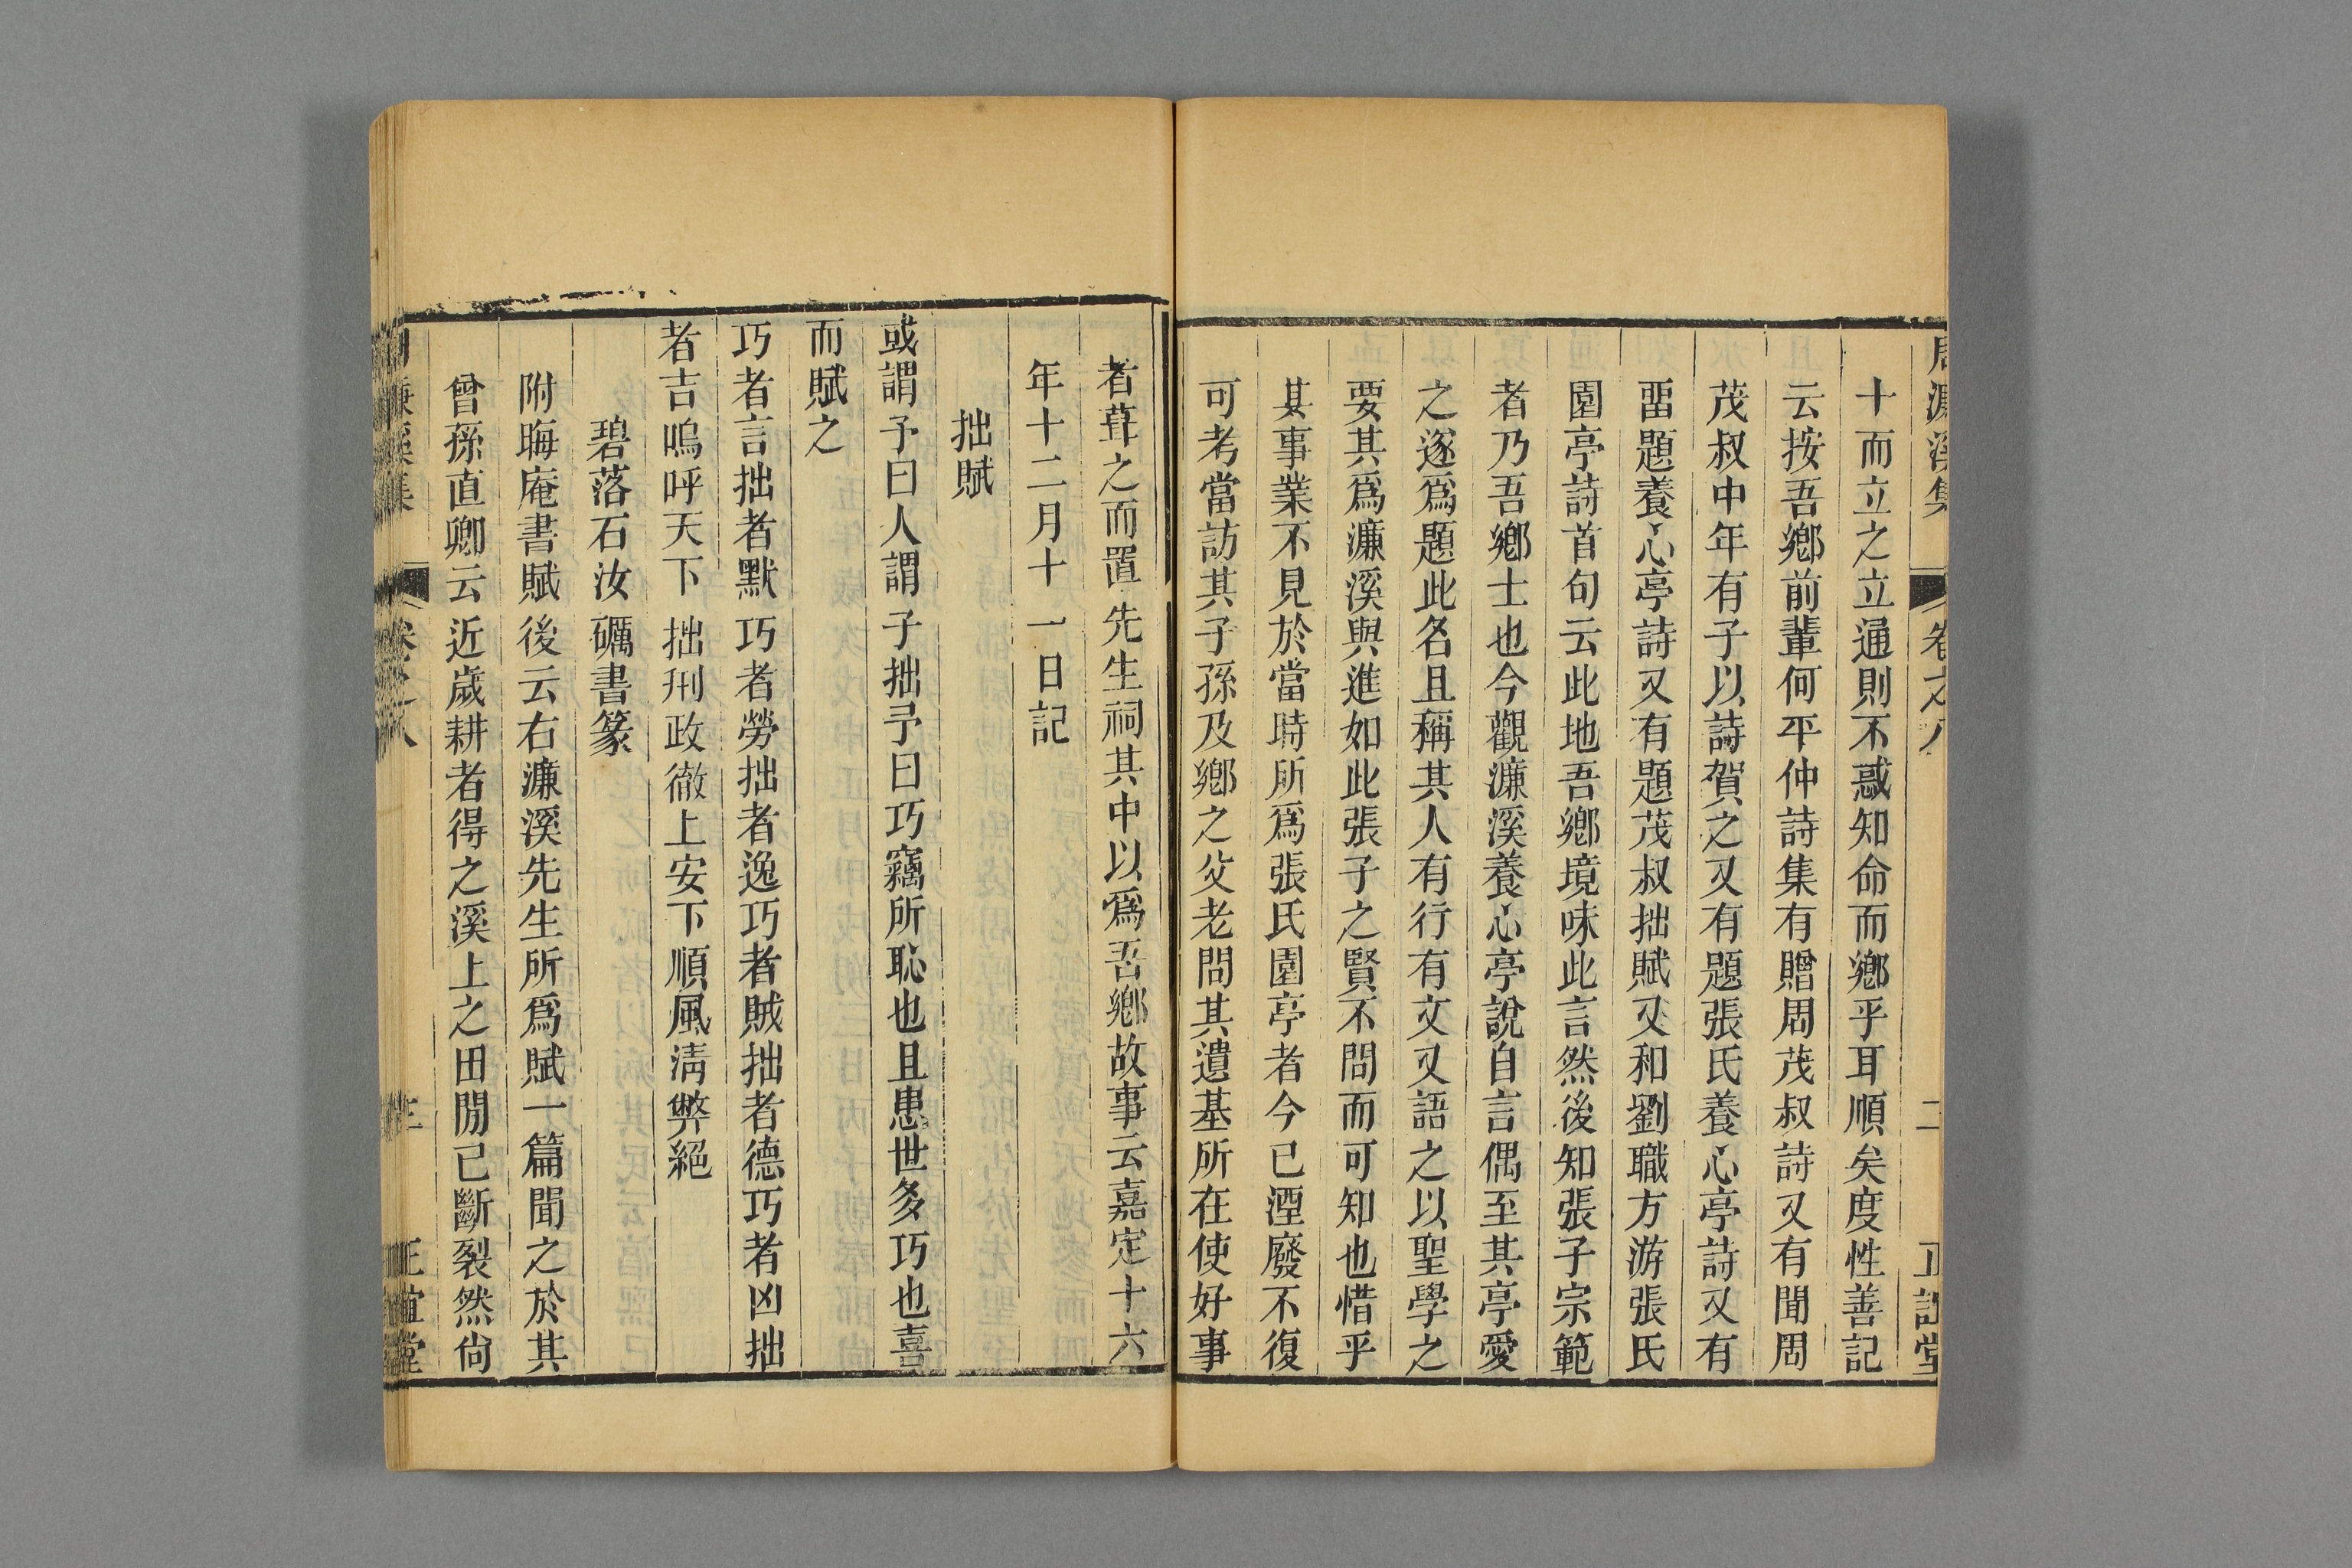 周濂溪集 卷之八 二 正誼堂
十而立之立通則不惑知命而鄉乎耳順矣度性善記
云按吾鄉前輩何平仲詩集有贈周茂叔詩又有聞周
茂叔中年有子以詩賀之又有題張氏養心亭詩又有
畱題養心亭詩又有題茂叔拙賦又和劉職方游張氏
園亭詩首句云此地吾鄉境味此言然後知張子宗範
者乃吾鄉士也今觀濂溪養心亭說自言偶至其亭愛
之遂爲題此名且稱其人有行有文又語之以聖學之
要其爲濂溪與進如此張子之賢不問而可知也惜乎
其事業不見於當時所爲張氏園亭者今已湮廢不復
可考當訪其子孫及鄉之父老問其遺基所在使好事
者葺之而置先生祠其中以爲吾鄉故事云嘉定十六
年十二月十一日記
拙賦
或謂予曰人謂子拙予曰巧竊所恥也且患世多巧也喜
而賦之
巧者言拙者默巧者勞拙者逸巧者賊拙者德巧者凶拙
者吉嗚呼天下拙刑政徹上安下順風淸弊絕
碧落石汝礪書篆
附晦庵書賦後云右濂溪先生所爲賦一篇聞之於其
曾孫直卿云近歲耕者得之溪上之田間已斷裂然尙
周濂溪集 卷之八 正誼堂